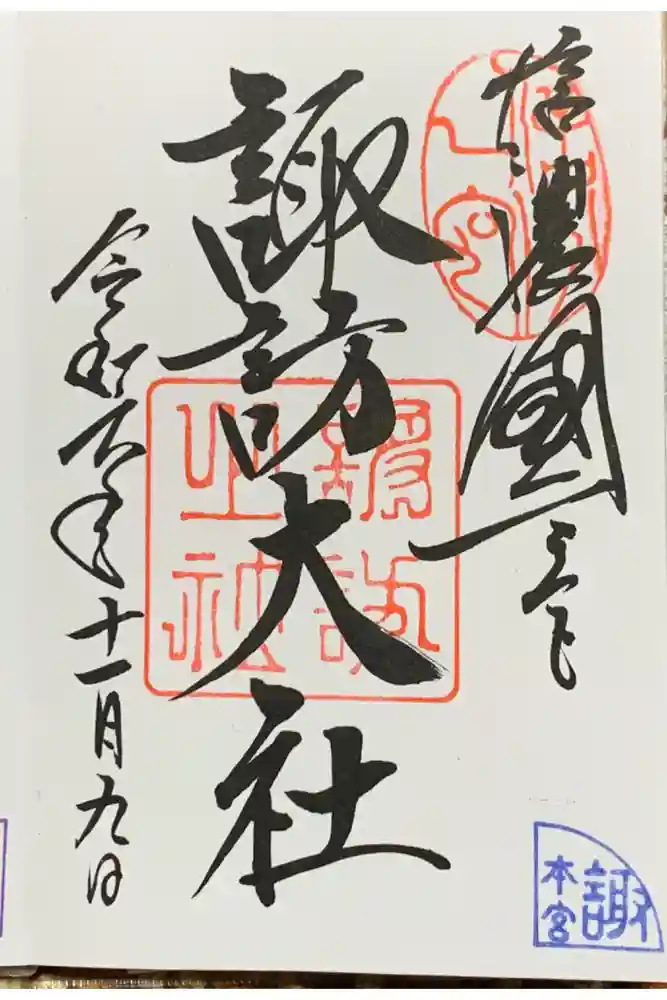 信濃國一之宮
諏訪大社
令和六年十一月九日
諏訪
之神
諏
本宮